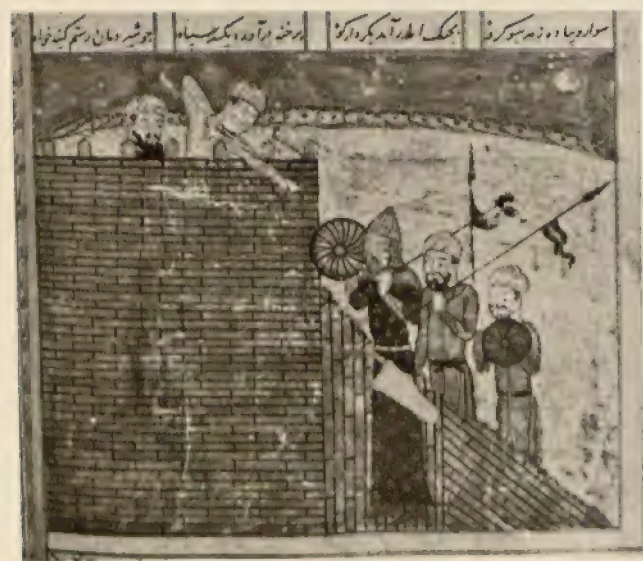 سوار و پیاده ز هر سو کروه بجنک اندر آمد بکردار کوه برخنه در آورد یکسر سپاه چو شیر دمان رستم کینه خواه